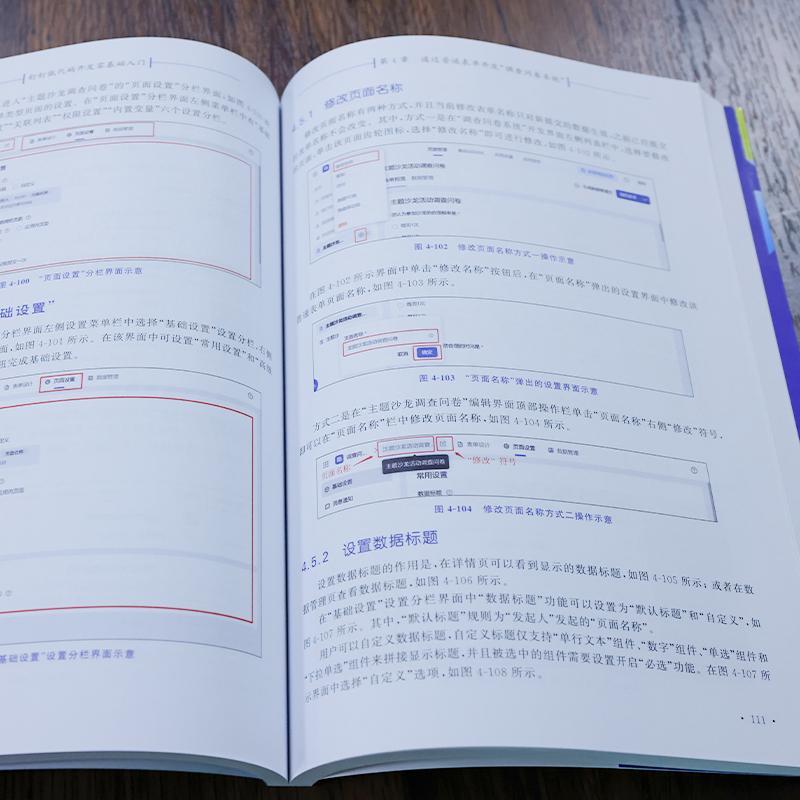 钉钉低代码开发零基础入门
进入“主题沙龙调查问卷”的“页面设置”分栏界面,如图4-
类型页面的设置。在“页面设置”分栏界面左侧菜单栏中有“基础
“关联列表”“权限设置”“内置变量”六个设置分栏。
图4-100 “页面设置”分栏界面示意
础设置”
分栏界面左侧设置菜单栏中选择“基础设置”设置分栏,右侧
面,如图4-101所示。在该界面中可设置“常用设置”和“高级
完成基础设置。
表单设计 页面设置 数据管理
基础设置”设置分栏界面示意
第4章 通过普通表单开发“调查问卷系统”
4.5.1 修改页面名称
修改页面名称有两种方式,并且当前修改表单名称只对新提交的数据生效,之前已经提交
的表单名称不会改变。其中,方式一是在“调查问卷系统”开发界面左侧列表栏中,选择要修改
的页面,单击该页面齿轮图标,选择“修改名称”即可进行修改,如图4-102所示。
主题沙龙活动调查问卷
主题沙龙活动调查问卷
主题沙龙...
图4-102 修改页面名称方式一操作示意
在图4-102所示界面中单击“修改名称”按钮后,在“页面名称”弹出的设置界面中修改该
普通表单页面名称,如图4-103所示。
主题沙龙活动调查...
页面名称
主题沙龙活动调查问卷
取消 确定
图4-103 “页面名称”弹出的设置界面示意
方式二是在“主题沙龙调查问卷”编辑界面顶部操作栏单击“页面名称”右侧“修改”符号,
即可以在“页面名称”栏中修改页面名称,如图4-104所示。
调查问... 主题沙龙活动调查 表单设计 页面设置 数据管理
页面名称 主题沙龙活动调查问卷 “修改”符号
基础设置 常用设置
消息通知 数据标题
图4-104 修改页面名称方式二操作示意
4.5.2 设置数据标题
设置数据标题的作用是,在详情页可以看到显示的数据标题,如图4-105所示;或者在数
据管理页查看数据标题,如图4-106所示。
在“基础设置”设置分栏界面中“数据标题”功能可以设置为“默认标题”和“自定义”,如
图4-107所示。其中,“默认标题”规则为“发起人”发起的“页面名称”。
用户可以自定义数据标题,自定义标题仅支持“单行文本”组件、“数字”组件、“单选”组件和
“下拉单选”组件来拼接显示标题,并且被选中的组件需要设置开启“必选”功能。在图4-107所
示界面中选择“自定义”选项,如图4-108所示。
· 111 ·